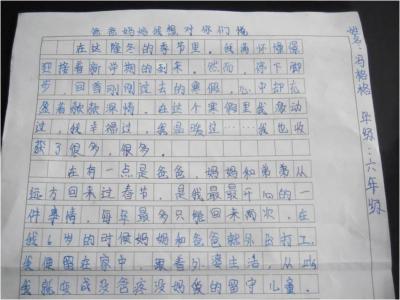 爸爸妈妈我想对你们说
在这隆冬的季节里，我满怀憧憬
迎接着新学期的到来。然而，停下脚
步，回首刚刚过去的寒假，心中却充
盈着款款深情。在这个寒假里我感动
过，我幸福过，我品味过……我也收
获了很多，很多。
在有一点是爸爸，妈妈和弟弟从
远方回来过春节，是我最最开心的一
件事情，每年最多只能回来两次，在
我6岁的时候妈妈和爸爸就外出打工，
我便留在家中，跟着外婆生活，从此
我就变成没爸疼没妈爱的留守儿童。
格格 年级：六年级